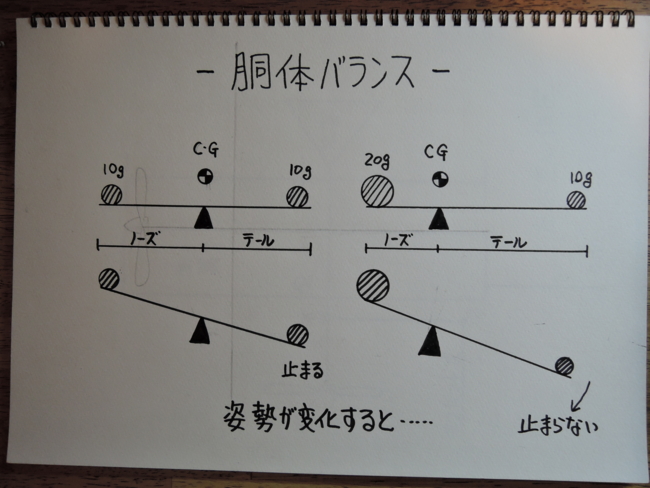 - 胴体バランス -
C・G
10g
10g
CG
20g
10g
ノーズ
テール
ノーズ
テール
止まる
姿勢が変化すると・・・・・
止まらない